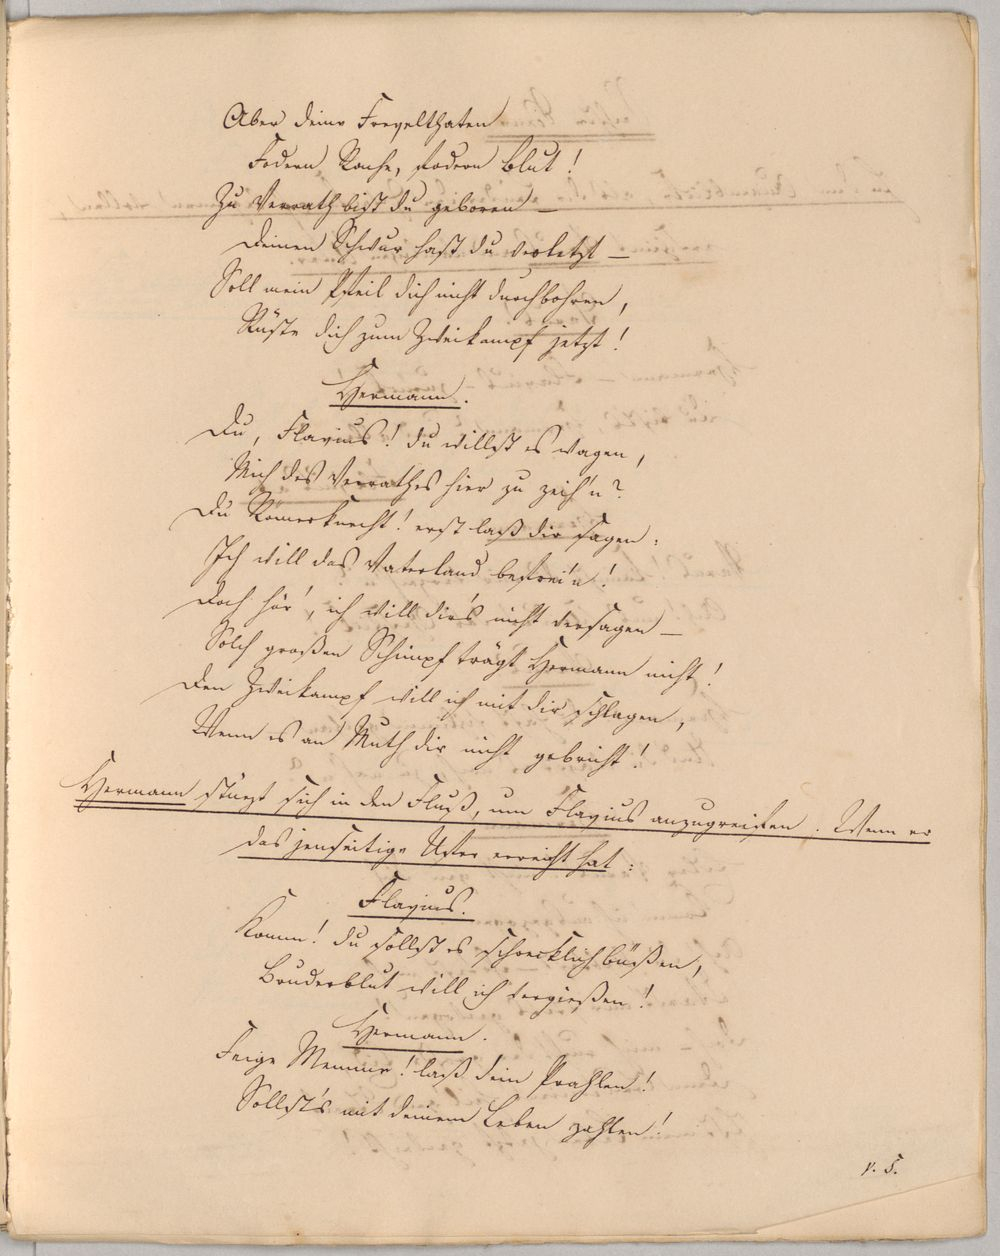 Aber deine Frevelthaten
Fodern Rache, fodern Blut!
Zu Verrath bist du geboren —
Deinen Schwur hast du verletzt —
Soll mein Pfeil dich nicht durchbohren,
Rüste dich zum Zweikampf jetzt!
Hermann.
Du, Flavius! du willst es wagen,
Mich des Verrathes hier zu zeih'n?
Du Römerknecht! erst laß dir sagen:
Ich will das Vaterland befrei'n!
Doch hör', ich will dir's nicht versagen —
Solch großen Schimpf trägt Hermann nicht!
Den Zweikampf will ich mit dir schlagen,
Wenn es an Muth dir nicht gebricht!
Hermann stürzt sich in den Fluß, um Flavius anzugreifen. Wenn er
das jenseitige Ufer erreicht hat:
Flavius.
Komm! du sollst es schrecklich büßen,
Bruderblut will ich vergießen!
Hermann.
Feige Memme! laß dein Prahlen!
Sollst's mit deinem Leben zahlen!